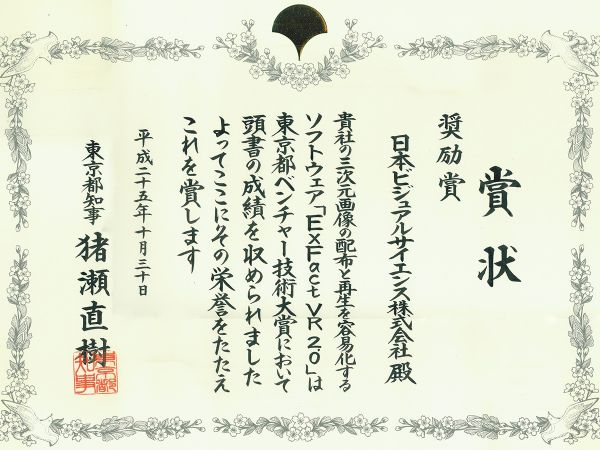 賞状
奨励賞
日本ビジュアルサイエンス株式会社 殿
貴社の三次元画像の配布と再生を容易化する
ソフトウェア「ExFact VR 2.0」は
東京都ベンチャー技術大賞において
頭書の成績を収められました
よってここにその栄誉をたたえ
これを賞します
平成二十五年十月三十日
東京都知事 猪瀬直樹
東京都知事